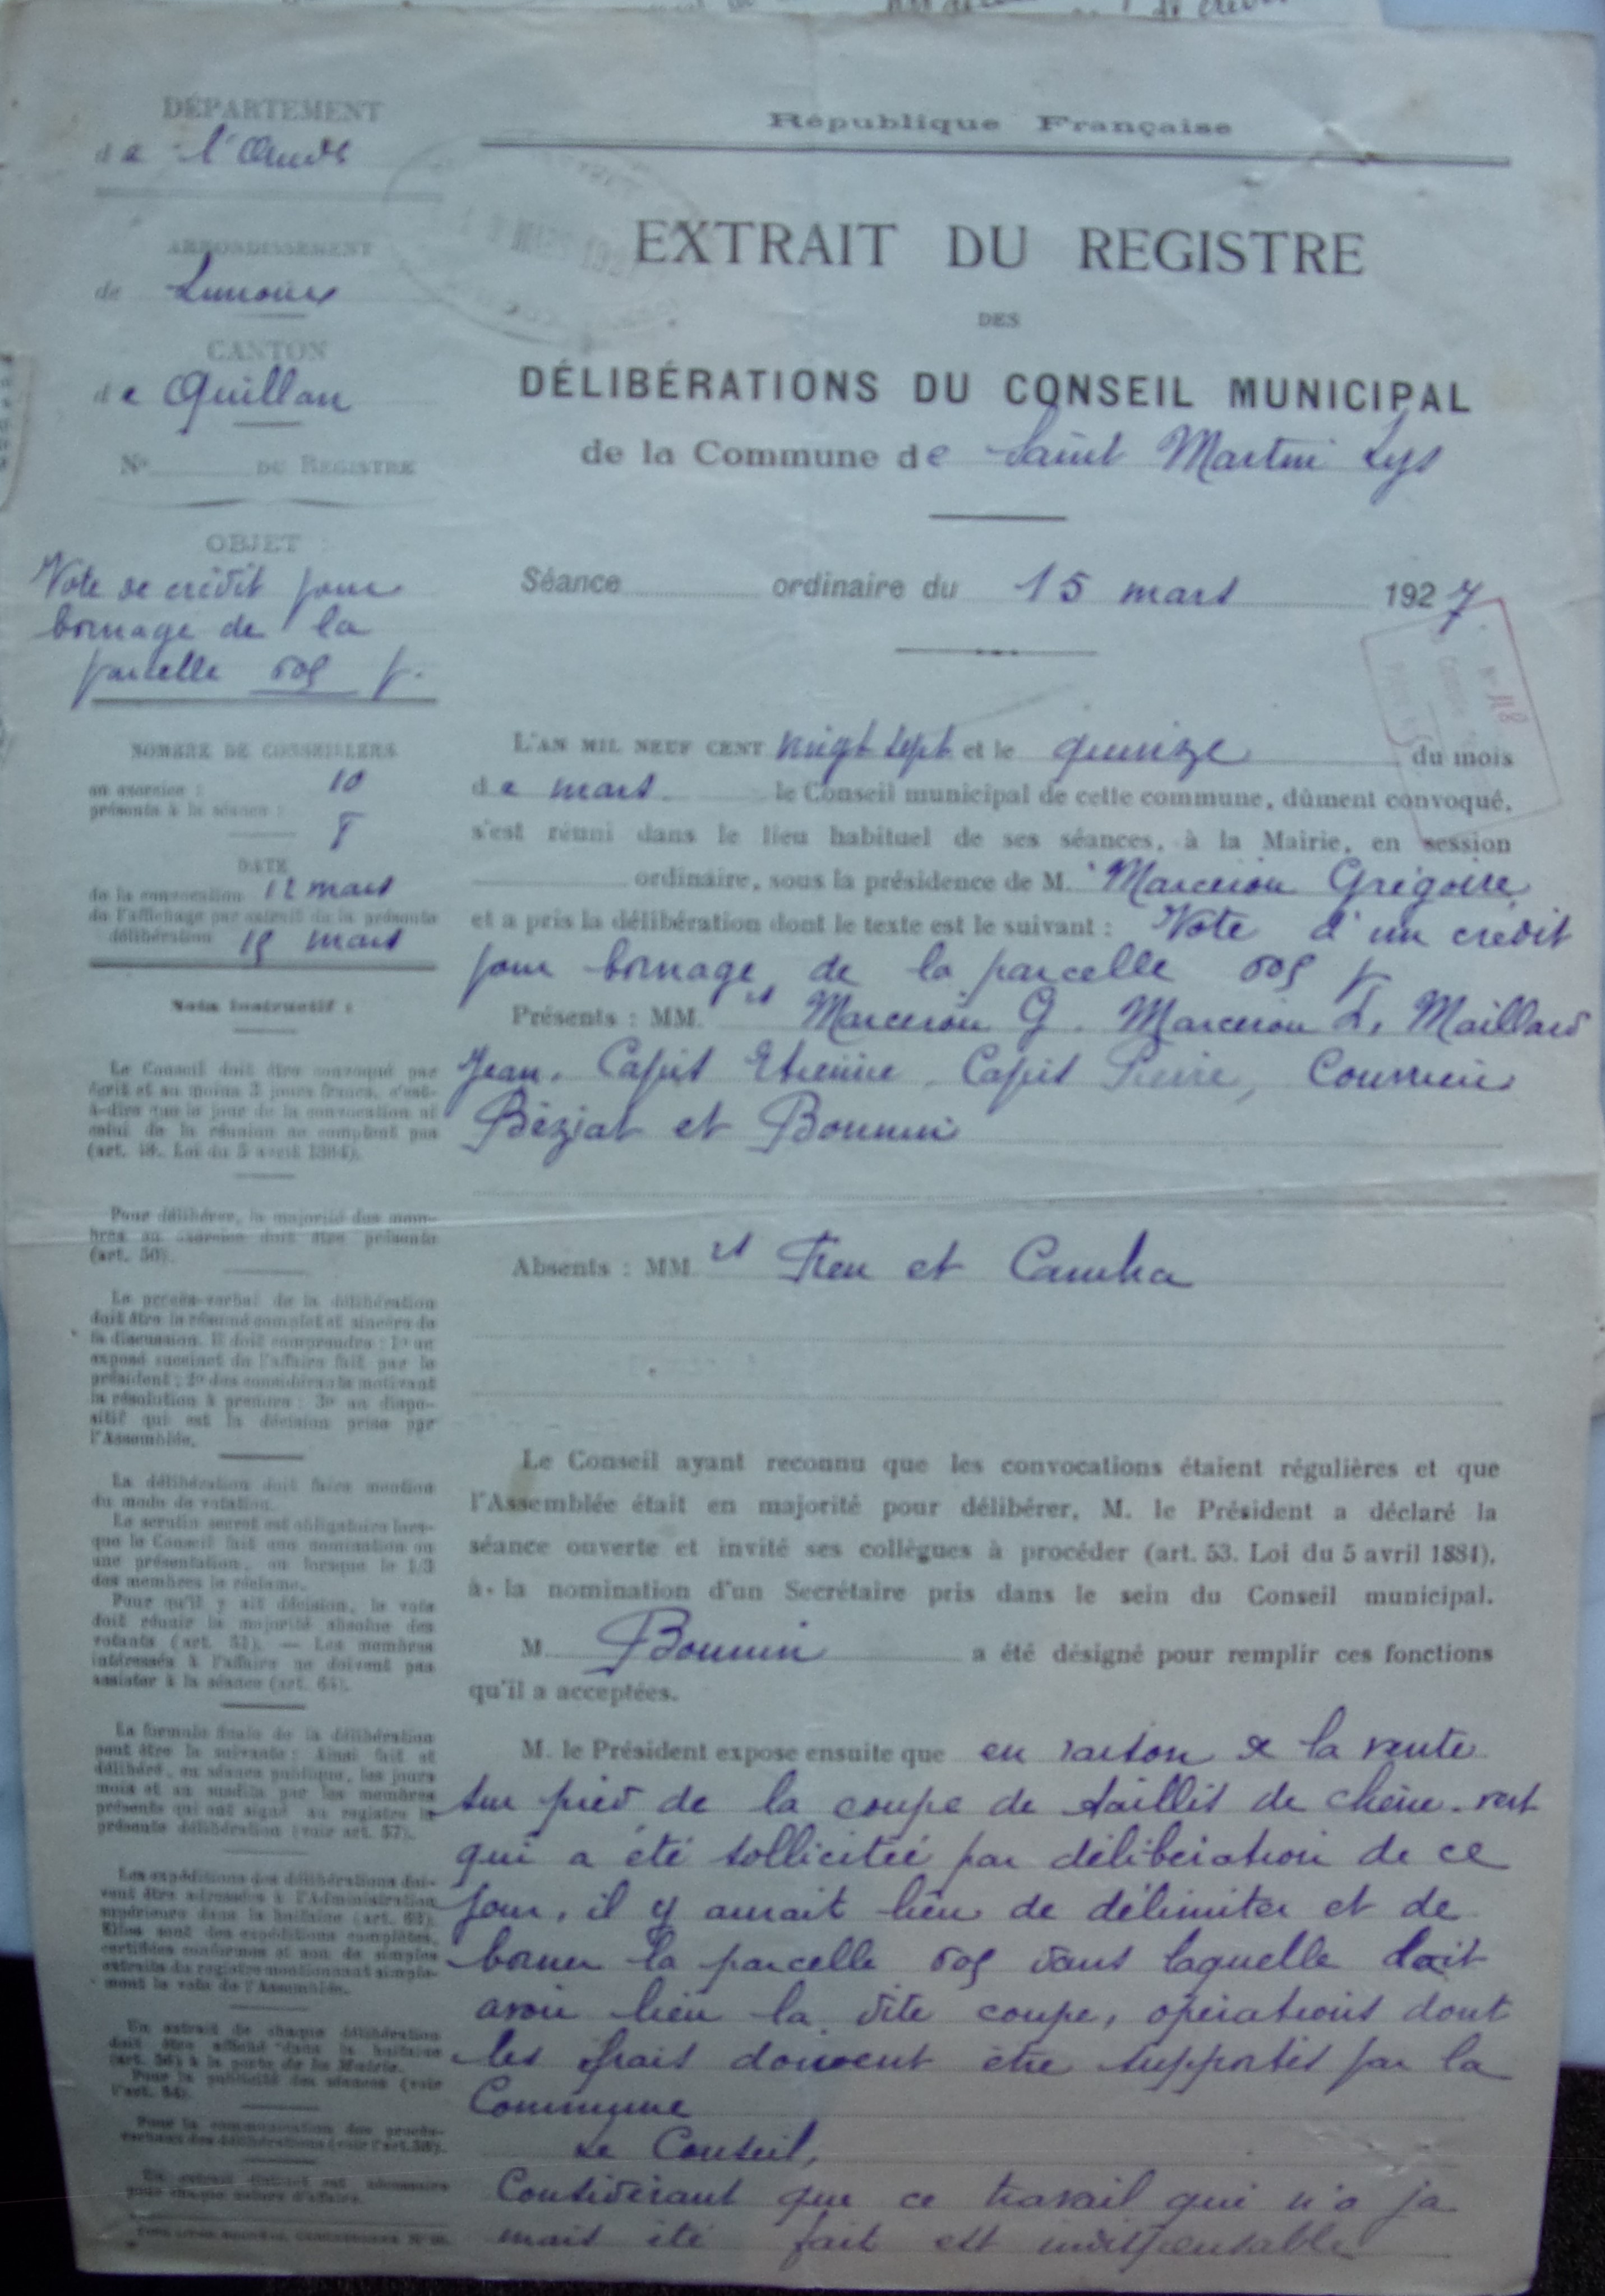 DÉPARTEMENT
de l'Aude
ARRONDISSEMENT
de Limoux
CANTON
de Quillan
N° DU REGISTRE
OBJET :
Vote de crédit pour
bornage de la
parcelle 605 p.
NOMBRE DE CONSEILLERS
en exercice : 10
présents à la séance : 8
DATE
de la convocation 12 mars
de l'affichage par extrait de la présente
délibération 15 mars
Nota instructif :
Le Conseil doit être convoqué par
écrit et au moins 3 jours francs, c'est-
à-dire que le jour de la convocation ni
celui de la réunion ne comptent pas
(art. 48. Loi du 5 avril 1884).
Pour délibérer, la majorité des mem-
bres en exercice doit être présente
(art. 50).
Le procès-verbal de la délibération
doit être le résumé complet et sincère de
la discussion. Il doit comprendre : 1° un
exposé succinct de l'affaire fait par le
président ; 2° des considérants motivant
la résolution à prendre ; 3° un dispo-
sitif qui est la décision prise par
l'Assemblée.
La délibération doit faire mention
du mode de votation.
Le scrutin secret est obligatoire lors-
que le Conseil fait une nomination ou
une présentation, ou lorsque le 1/3
des membres le réclame.
Pour qu'il y ait décision, le vote
doit réunir la majorité absolue des
votants (art. 51). — Les membres
intéressés à l'affaire ne doivent pas
assister à la séance (art. 64).
La formule finale de la délibération
peut être la suivante : Ainsi fait et
délibéré, en séance publique, les jours
mois et an susdits par les membres
présents qui ont signé au registre la
présente délibération (voir art. 57).
Les expéditions des délibérations doi-
vent être adressées à l'Administration
supérieure dans la huitaine (art. 62).
Elles sont des expéditions complètes,
certifiées conformes et non de simples
extraits du registre mentionnant simple-
ment le vote de l'Assemblée.
Un extrait de chaque délibération
doit être affiché dans la huitaine
(art. 56) à la porte de la Mairie.
Pour la publicité des séances (voir
l'art. 54).
Pour la communication des procès-
verbaux des délibérations (voir l'art. 58).
Un extrait distinct est nécessaire
pour chaque nature d'affaire.
République Française
EXTRAIT DU REGISTRE
DES
DÉLIBÉRATIONS DU CONSEIL MUNICIPAL
de la Commune de Saint Martin Lys
Séance ordinaire du 15 mars 1927
L'AN MIL NEUF CENT vingt sept et le quinze du mois
de mars le Conseil municipal de cette commune, dûment convoqué,
s'est réuni dans le lieu habituel de ses séances, à la Mairie, en session
ordinaire, sous la présidence de M. Marcerou Grégoire
et a pris la délibération dont le texte est le suivant : Vote d'un crédit
pour bornage de la parcelle 605 p
Présents : MM. rs Marcerou G. Marcerou L, Maillard
Jean, Capit Etienne, Capit Pierre, Courrieu
Béziat et Bounin
Absents : MM. rs et Camba
Le Conseil ayant reconnu que les convocations étaient régulières et que
l'Assemblée était en majorité pour délibérer, M. le Président a déclaré la
séance ouverte et invité ses collègues à procéder (art. 53. Loi du 5 avril 1884),
à la nomination d'un Secrétaire pris dans le sein du Conseil municipal.
M. Bounin a été désigné pour remplir ces fonctions
qu'il a acceptées.
M. le Président expose ensuite que en raison de la vente
sur pied de la coupe de taillis de chêne-vert
qui a été sollicitée par délibération de ce
jour, il y aurait lieu de délimiter et de
borner la parcelle 605 dans laquelle doit
avoir lieu la dite coupe, opérations dont
les frais doivent être supportés par la
Commune
Le Conseil,
Considérant que ce travail qui n'a ja
mais été fait est indispensable